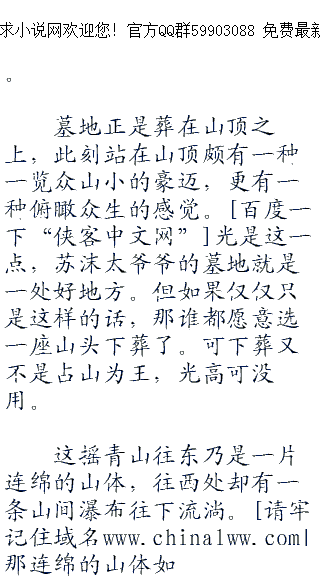 求小说网欢迎您! 官方QQ群59903088 免费最新
。
墓地正是葬在山顶之
上，此刻站在山顶颇有一种
一览众山小的豪迈，更有一
种俯瞰众生的感觉。[百度一
下“侠客中文网”]光是这一
点，苏沫太爷爷的墓地就是
一处好地方。但如果仅仅只
是这样的话，那谁都愿意选
一座山头下葬了。可下葬又
不是占山为王，光高可没
用。
这摇青山往东乃是一片
连绵的山体，往西处却有一
条山间瀑布往下流淌。[请牢
记住域名www.chinalww.com|
那连绵的山体如